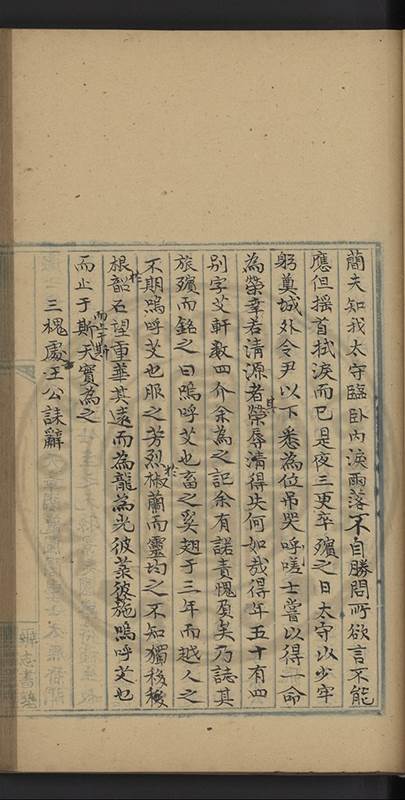 蕳夫知我太守臨臥內淚雨落不自勝問所欲言不能
應但搖首拭淚而已是夜三更卒殯之日太守以少牢
躬奠城外令尹以下悉為位吊哭呼嗟士嘗以得一命
為榮幸若清源者其榮辱清得失何如哉得年五十有四
別字艾軒數四介余為之記余有諾責愧負矣乃誌其
旅殯而銘之曰嗚呼艾也畜之奚翅于三年而越人之
不期嗚呼艾也服之芳烈於椒蘭而靈均之不知獨移穟
根於韶石望重華其遠而為龍為光彼菉彼葹嗚呼艾也
而止于斯而止于斯天實為之
三槐處士王公誄辭